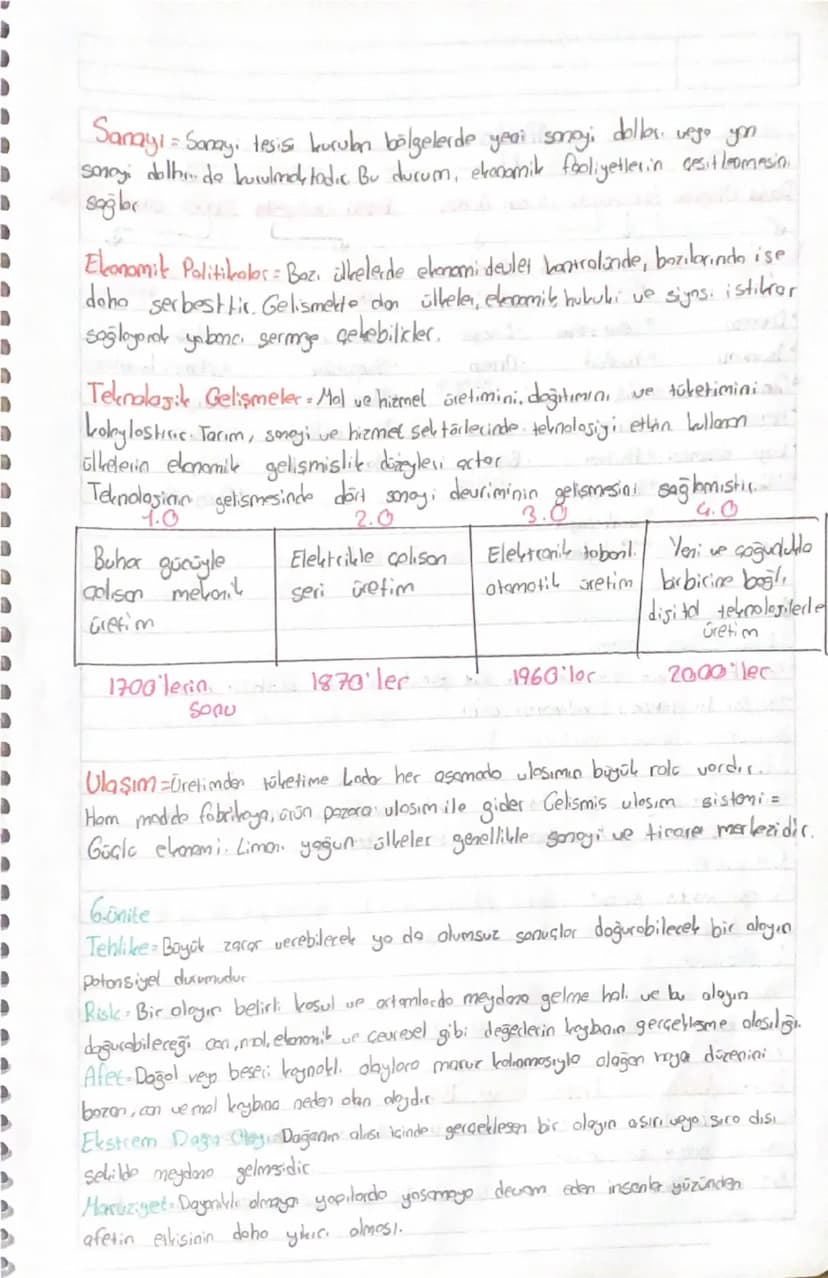 Sanayi = Sanayi tesisi kurulan bölgelerde yeni sanayi dalları veya yan
sanayi dalları da kurulmaktadır. Bu durum, ekonomik faaliyetlerin çeşitlenmesini
sağlar
Ekonomik Politikalar = Bazı ülkelerde ekonomi devlet kontrolünde, bazılarında ise
daha serbesttir. Gelişmekte olan ülkeler, ekonomik hukuki ve siyasi istikrar
sağlayarak yabancı sermaye çekebilirler.
Teknolojik Gelişmeler = Mal ve hizmet üretimini, dağıtımını ve tüketimini
kolaylaştırır. Tarım, sanayi ve hizmet sektörlerinde teknolojiyi etkin kullanan
ülkelerin ekonomik gelişmişlik düzeyleri artar
Teknolojinin gelişmesinde dört sanayi devriminin gelişmesini sağlamıştır.
1.0 2.0 3.0 4.0
Buhar gücüyle
çalışan mekanik
üretim
Elektrikle çalışan
seri üretim
Elektronik tabanlı
otomatik üretim
Yeni ve çoğunlukla
birbirine bağlı
dijital teknolojilerle
üretim
1700'lerin sonu
1870'ler
1960'lar
2000'ler
Ulaşım = Üretimden tüketime kadar her aşamada ulaşımın büyük rolü vardır.
Ham madde fabrikaya, ürün pazara ulaşım ile gider Gelişmiş ulaşım sistemi =
Güçlü ekonomi. Liman yoğun ülkeler genellikle sanayi ve ticaret merkezidir.
6.ünite
Tehlike = Büyük zarar verebilecek ya da olumsuz sonuçlar doğurabilecek bir olayın
potansiyel durumudur
Risk = Bir olayın belirli koşul ve ortamlarda meydana gelme hali ve bu olayın
doğurabileceği can, mal, ekonomik ve çevresel gibi değerlerin kaybının gerçekleşme olasılığı.
Afet = Doğal veya beşeri kaynaklı olaylara maruz kalınmasıyla olağan hayat düzenini
bozan, can ve mal kaybına neden olan olaydır
Ekstrem Doğa Olayı = Doğanın akışı içinde gerçekleşen bir olayın aşırı veya sıra dışı
şekilde meydana gelmesidir
Maruziyet = Dayanıklı olmayan yapılarda yaşamaya devam eden insanlar yüzünden
afetin etkisinin daha yıkıcı olması.